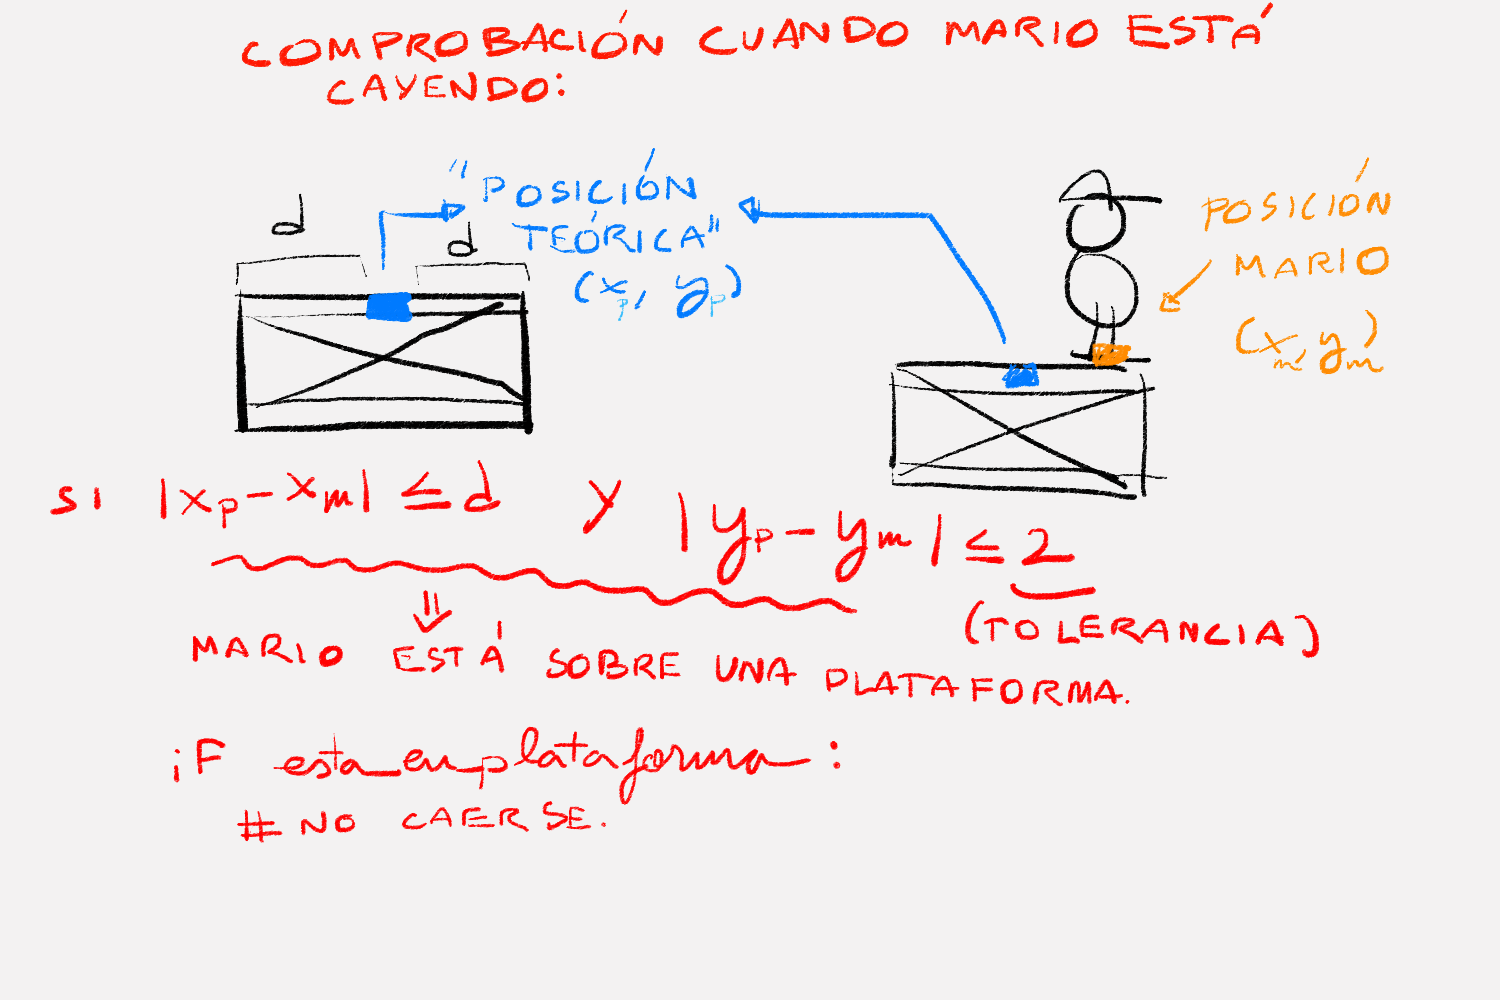 COMPROBACIÓN CUANDO MARIO ESTÁ
CAYENDO:
d
d
"POSICIÓN
TEÓRICA"
(xp, yp)
POSICIÓN
MARIO
(xm, ym)
SI |xp - xm| ≤ d y |yp - ym| ≤ 2
(TOLERANCIA)
⇓
MARIO ESTÁ SOBRE UNA PLATAFORMA.
iF esta_en_plataforma:
# NO CAERSE.